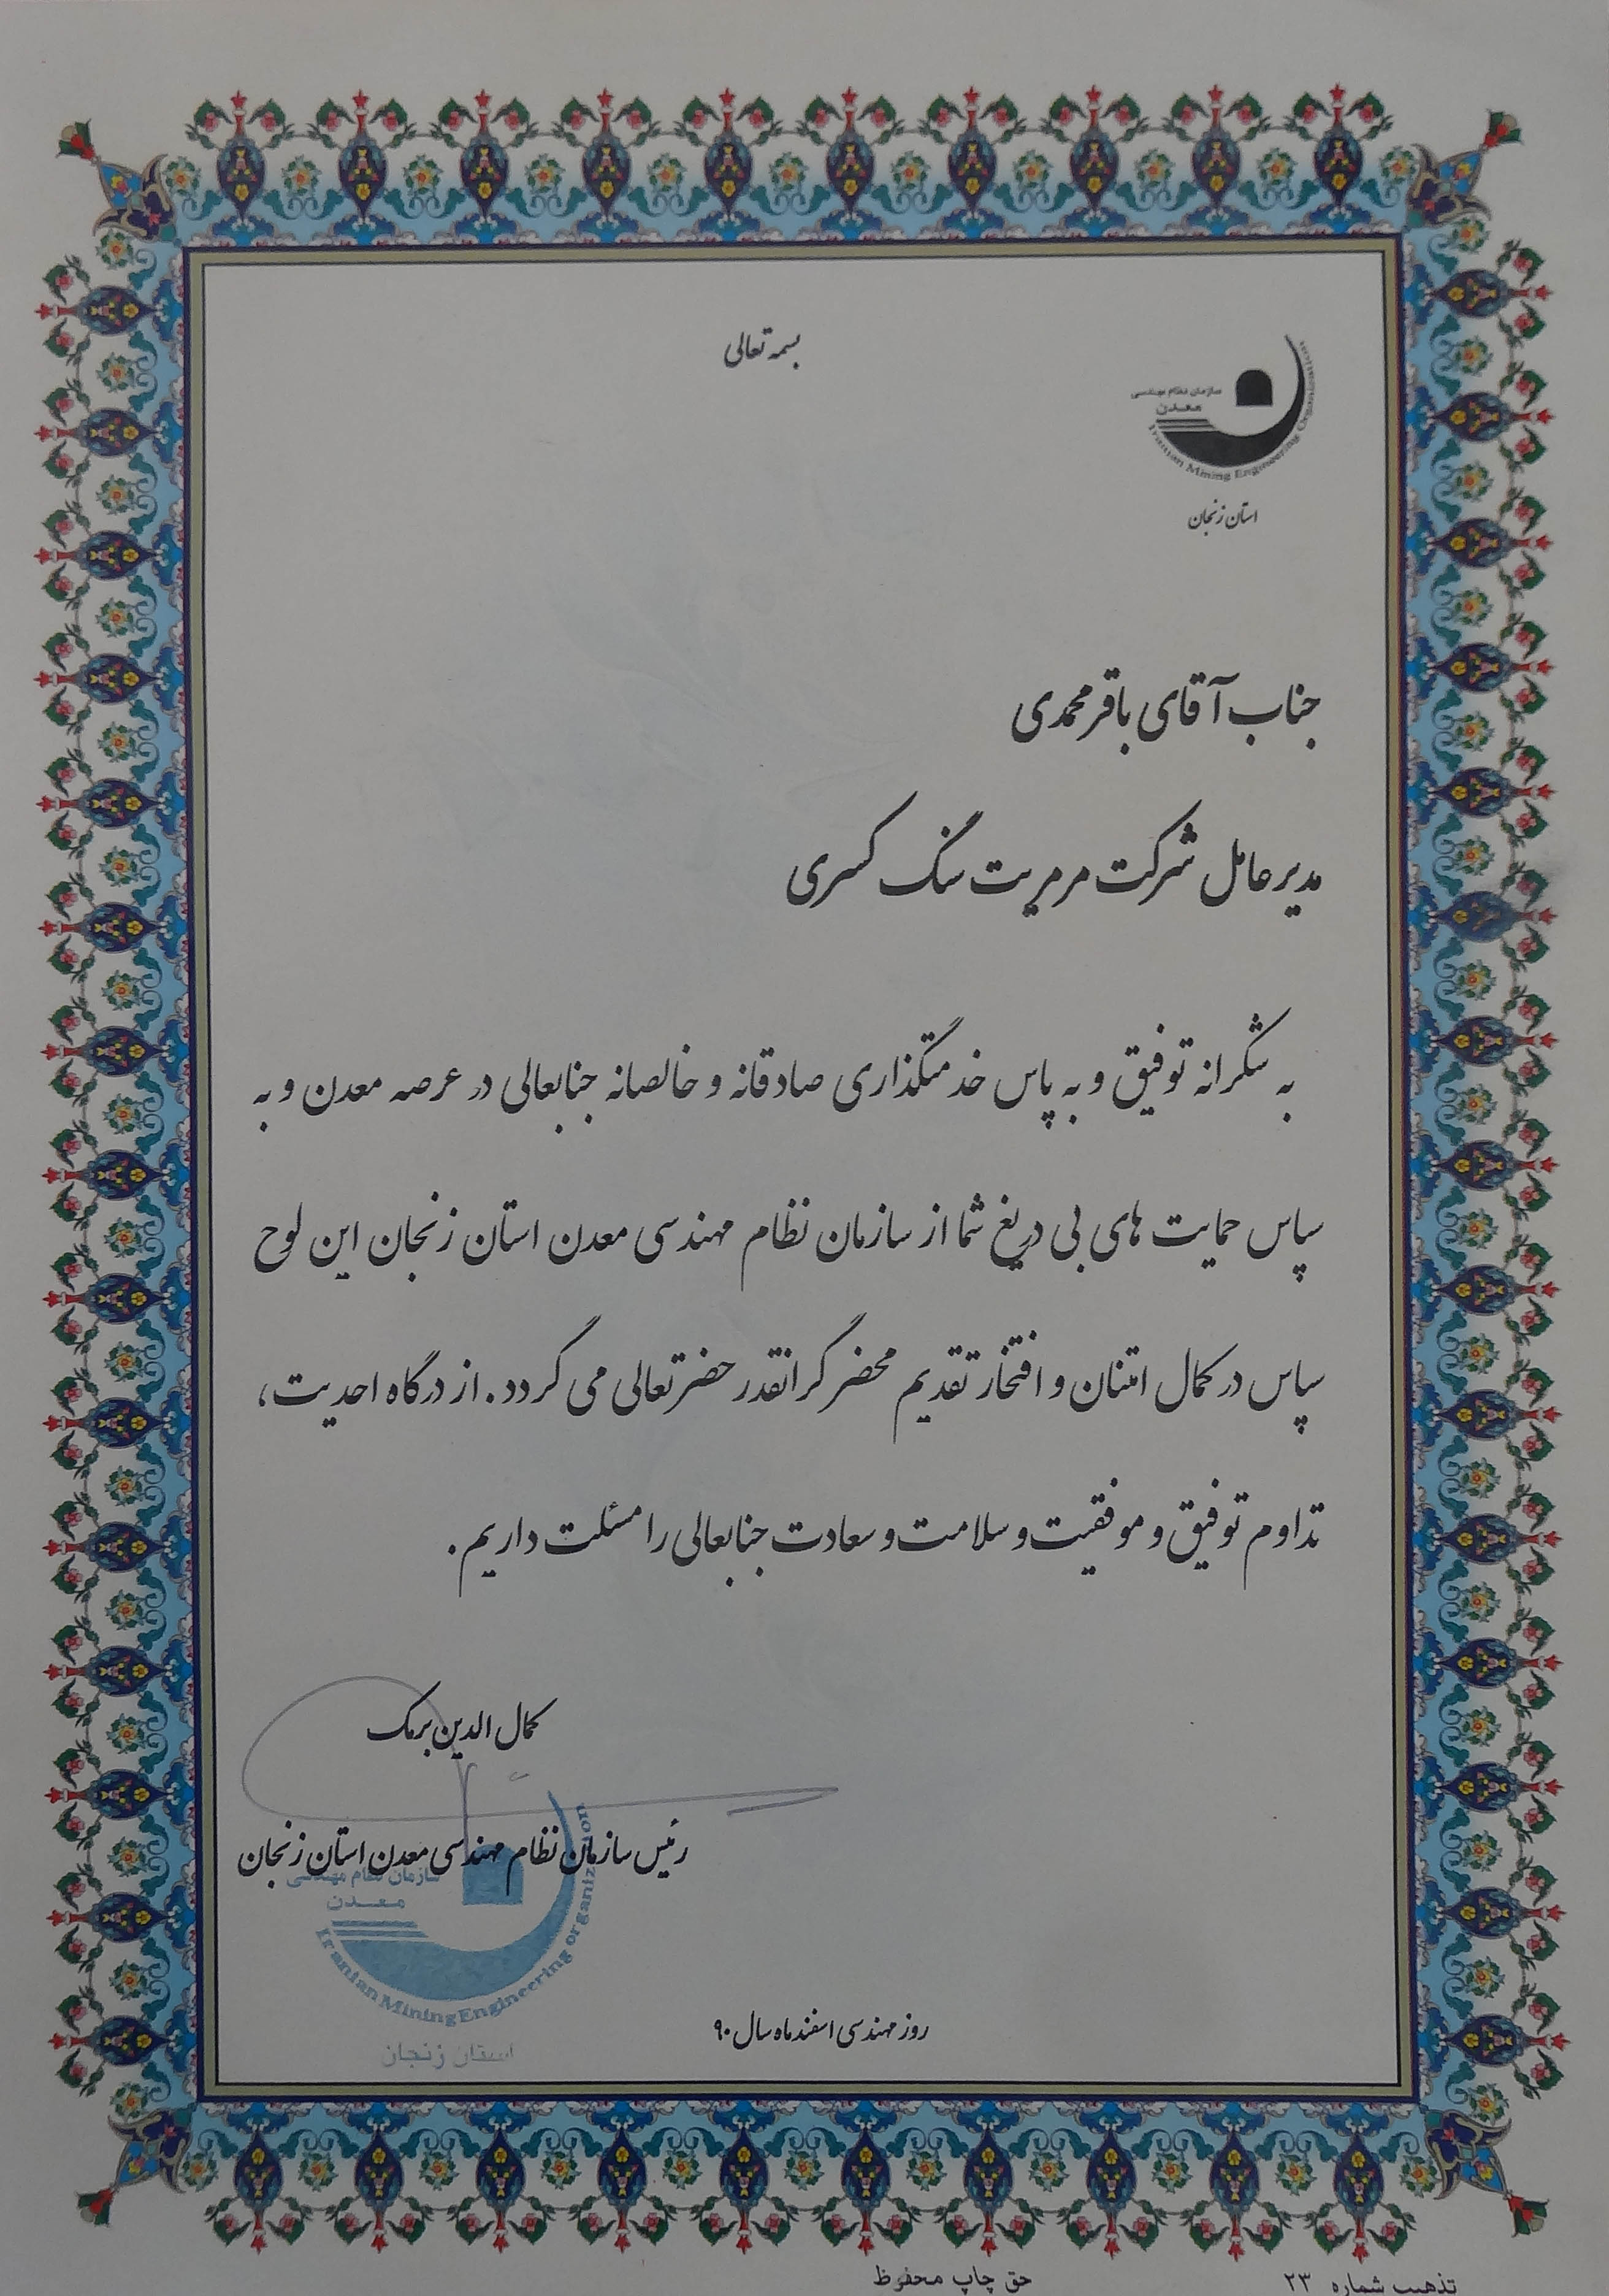 بسمه تعالی
سازمان نظام مهندسی
معدن
Iranian Mining Engineering Organization
استان زنجان
جناب آقای باقر محمدی
مدیر عامل شرکت مرمریت سنگ کسری
به شکرانه توفیق و به پاس خدمتگذاری صادقانه و خالصانه جنابعالی در عرصه معدن و به
سپاس حمایت های بی دریغ شما از سازمان نظام مهندسی معدن استان زنجان این لوح
سپاس در کمال امتنان و افتخار تقدیم محضر گرانقدر حضرتعالی می گردد. از درگاه احدیت،
تداوم توفیق و موفقیت و سلامت و سعادت جنابعالی را مسئلت داریم.
کمال الدین برمک
رئیس سازمان نظام مهندسی معدن استان زنجان
سازمان نظام مهندسی
معدن
Iranian Mining Engineering organization
استان زنجان
روز مهندسی اسفند ماه سال ۹۰
حق چاپ محفوظ
تذهیب شماره ۲۳